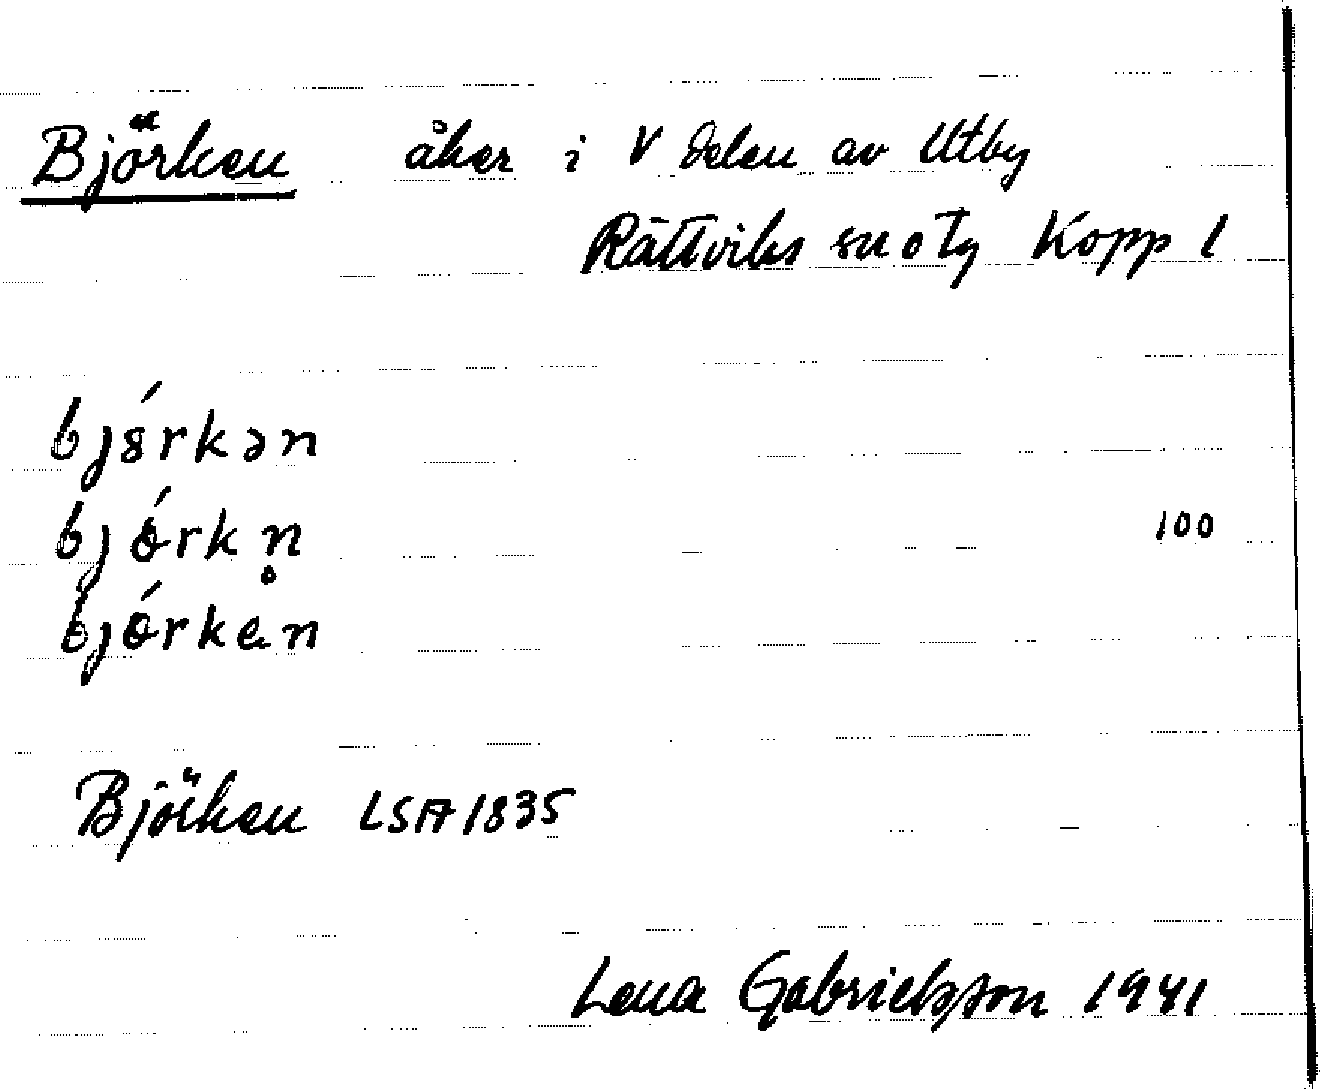 Björken åker i V delen av Utby
Rättviks sn o tg Kopp l
björkən
bjɵ́rkn̥
bjɵ́rken
Björken LSA 1835
100
Lena Gabrielsson 1941